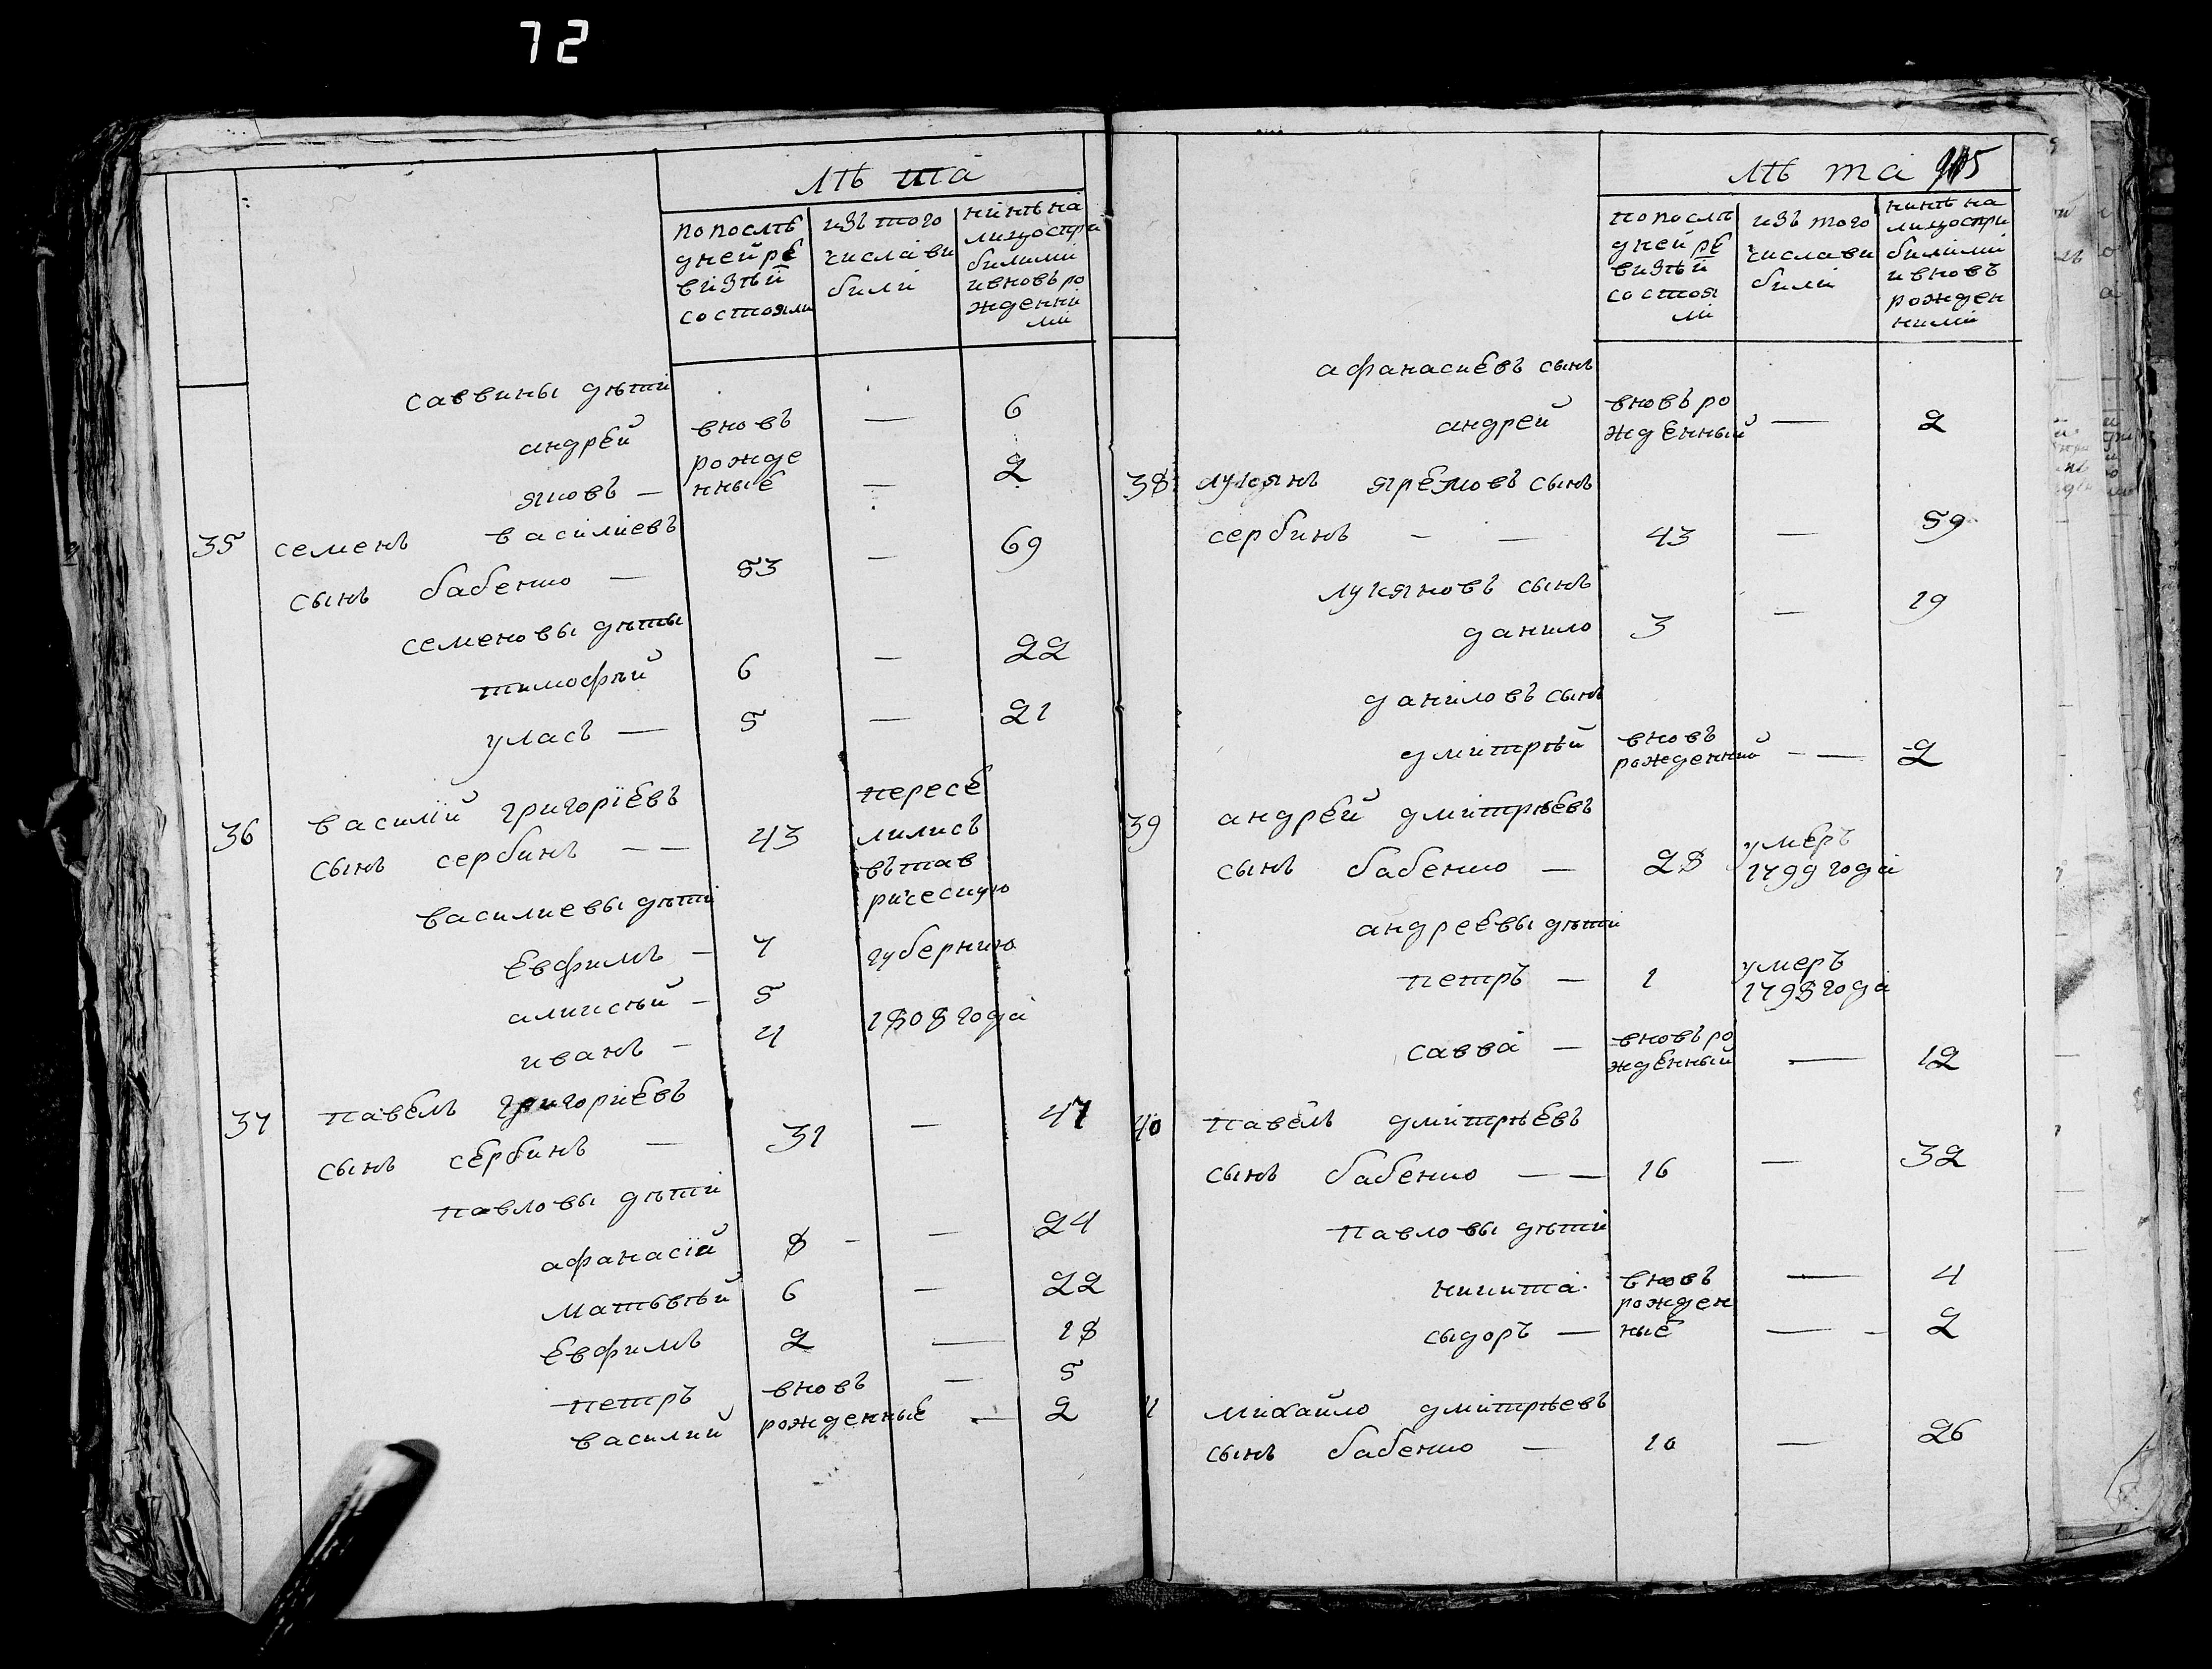 72
лѣ та
по послѣ
дней ре
визѣй
состояли
изъ того
числа ви
били
нинѣ на
лицо при
билими
и вновь ро
жденни
ми
саввины дѣти
андрей вновь — 6
яковъ — рожде
нные — 2
35 семенъ василиевъ
сынъ бабенко — 53 — 69
семеновы дѣты
тимофѣй 6 — 22
уласъ — 5 — 21
36 василій григоріевъ
сынъ сербинъ — — 43
пересе
лилисъ
въ тав
рическую
губернию
1808 года
василиевы дѣти
евфимъ — 7
аликсѣй — 5
иванъ — 4
37 павелъ григориевъ
сынъ сербинъ — 31 — 47
павловы дѣти
афанасій 8 - — 24
матьвѣй 6 — 22
евфимъ 2 — 18
петръ вновь — 5
василий рожденные — 2
лѣ та
по послѣ
дней ре
визѣй
состоя
ли
изъ того
числа ви
били
нинѣ на
лицо при
билими
и вновь
рожден
ними
афанасиевъ сынъ
андрей вновь ро
жденный — 2
38 лукянъ яремовъ сынъ
сербинъ - — 43 — 59
лукяновъ сынъ
данило 3 — 19
даниловъ сынъ
дмитрѣй вновь
рожденний - — 2
39 андрей дмитрѣевъ
сынъ бабенко — 28 умеръ
1799 года
андреевы дѣти
петръ — 1 умеръ
1798 года
савва — вновь ро
жденный — 12
40 павелъ дмитрѣевъ
сынъ бабенко — — 16 — 32
павловы дѣти
никита вновь — 4
рожден
сыдоръ — ные — - 2
михайло дмитрѣевъ
сынъ бабенко — 10 — 26